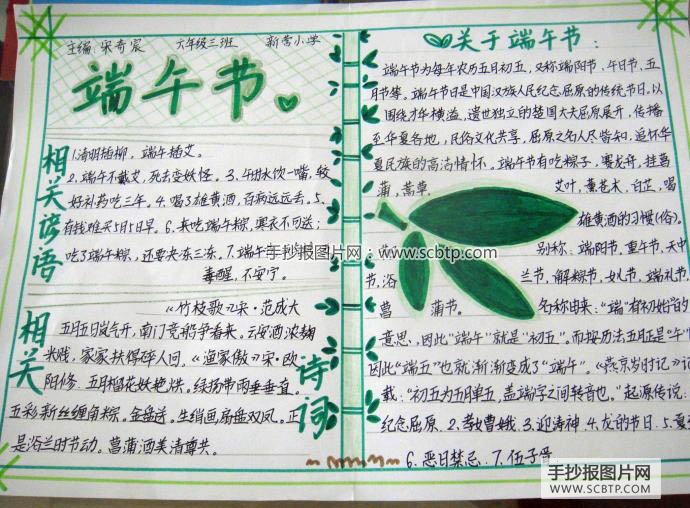 主编:宋奇宸 六年级三班 新营小学
端午节
相关谚语
1.清明插柳,端午插艾。
2.端午不戴艾,死去变妖怪。3.午时水饮一嘴,较
好补药吃三年。4.喝了雄黄酒,百病远远丢。5.
有钱难买5月5日旱。6.未吃端午粽,寒衣不可送;
吃了端午粽,还要冻三冻。7.端午
毒醒,不安宁。
相关诗词
《竹枝歌》宋·范成大
五月五日岚气开,南门竞船争看来。云安酒浓麹
米贱,家家扶得醉人回。《渔家傲》宋·欧
阳修.五月榴花妖艳烘。绿杨带雨垂垂重。
五彩新丝缠角粽。金盘送。生绡画扇盘双凤。正
是浴兰时节动。菖蒲酒美清尊共。
关于端午节:
端午节为每年农历五月初五,又称端阳节、午日节、五
月节等。端午节日是中国汉族人民纪念屈原的传统节日,以
围绕才华横溢、遗世独立的楚国大夫屈原展开,传播
至华夏各地,民俗文化共享,屈原之名人尽皆知,追怀华
夏民族的高洁情怀。端午节有吃粽子,赛龙舟,挂菖
蒲、蒿草、艾叶,薰苍术、白芷,喝
雄黄酒的习惯(俗)。
别称:端阳节、重午节、天中
节、浴兰节、解粽节、女儿节、端礼节
菖蒲节。名称由来:"端"有初始的
意思,因此"端午"就是"初五"。而按历法五月正是"午"
因此"端五"也就渐渐变成了"端午"。《燕京岁时记》记
载:"初五为五月单五,盖端字之间转音也。"起源传说:
纪念屈原、2.孝女曹娥、3.迎涛神、4.龙的节日、5.夏
6.恶日禁忌、7.伍子胥
手抄报图片网:www.scbtp.com
手抄报图片网
WWW.SCBTP.COM